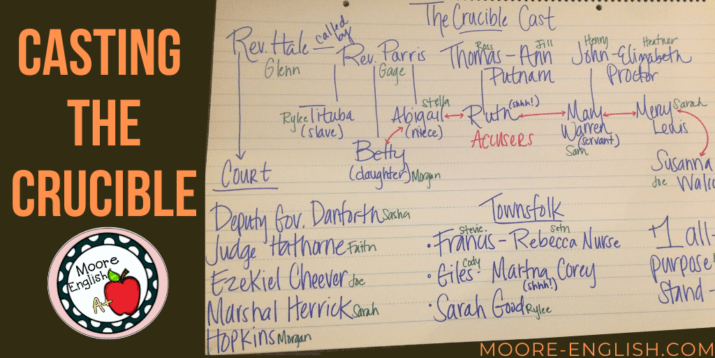 CASTING
THE
CRUCIBLE
Moore
English
A+
The Crucible Cast
Rev. Hale called by Rev. Parris
Glenn
Gage
Thomas - Ann
Ross Jill
Putnam
Henry Heather
John - Elizabeth
Proctor
Rylee Tituba
(slave)
Stella
Abigail
(niece)
Ruth (shhh!)
Mary
Warren
(servant)
Sam
Mercy Sarah
Lewis
ACCUSERS
Betty
(daughter) Morgan
Susanna
Joe Walco
Court
Deputy Gov. Danforth Sasha
Judge Hathorne Faith
Ezekiel Cheever Joe
Marshal Herrick Sarah
Hopkins Morgan
Townsfolk
Stevie Seth
• Francis - Rebecca Nurse
Cody
• Giles - Martha Corey
(shhh!)
• Sarah Good Rylee
+1 all-
purpose
Stand-
MOORE-ENGLISH.COM